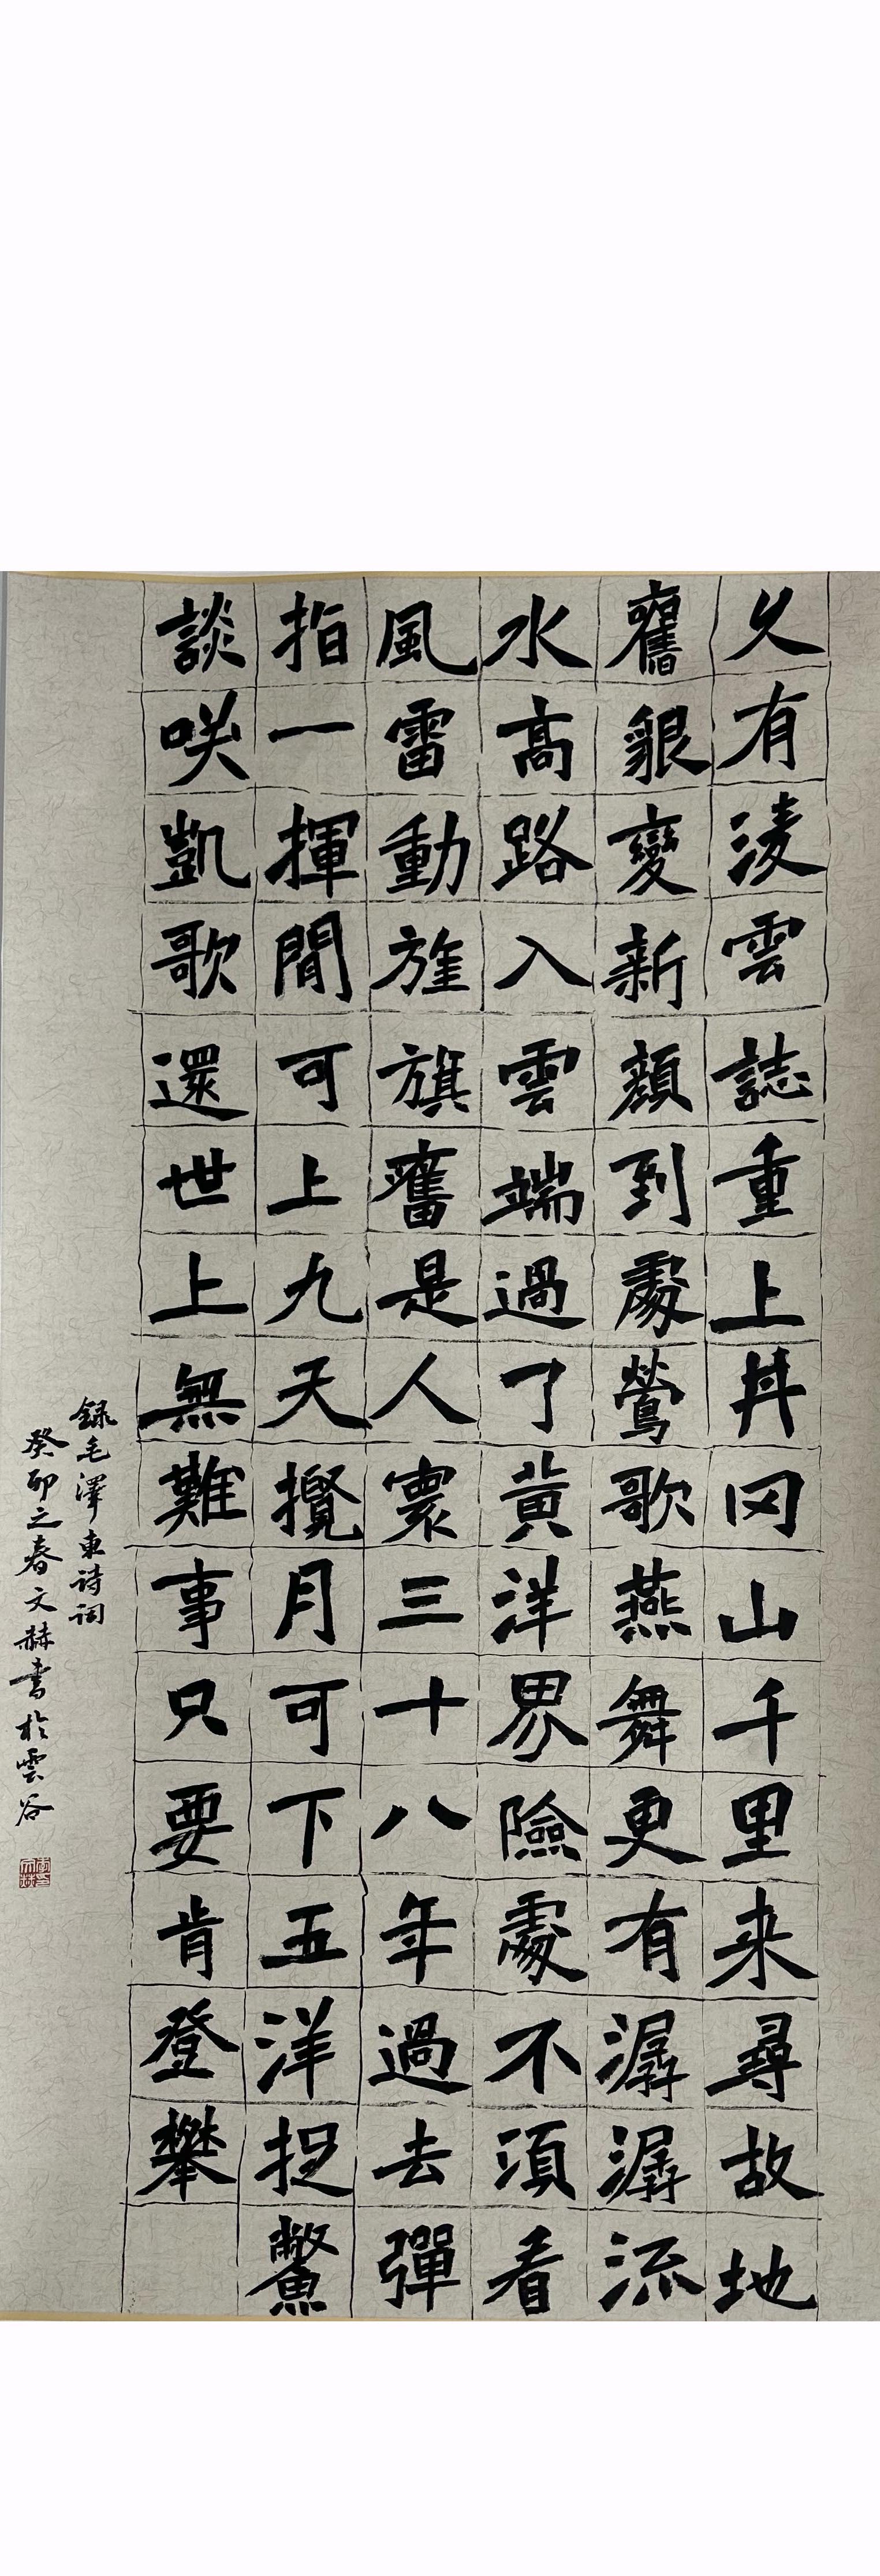 久有淩雲誌重上井冈山千里来尋故地
舊貌變新顔到處鶯歌燕舞更有潺潺流
水高路入雲端過了黄洋界險處不須看
風雷動旌旗奮是人寰三十八年過去彈
指一揮間可上九天攬月可下五洋捉鱉
談笑凱歌還世上無難事只要肯登攀
録毛澤東诗词
癸卯之春文赫書於雲谷